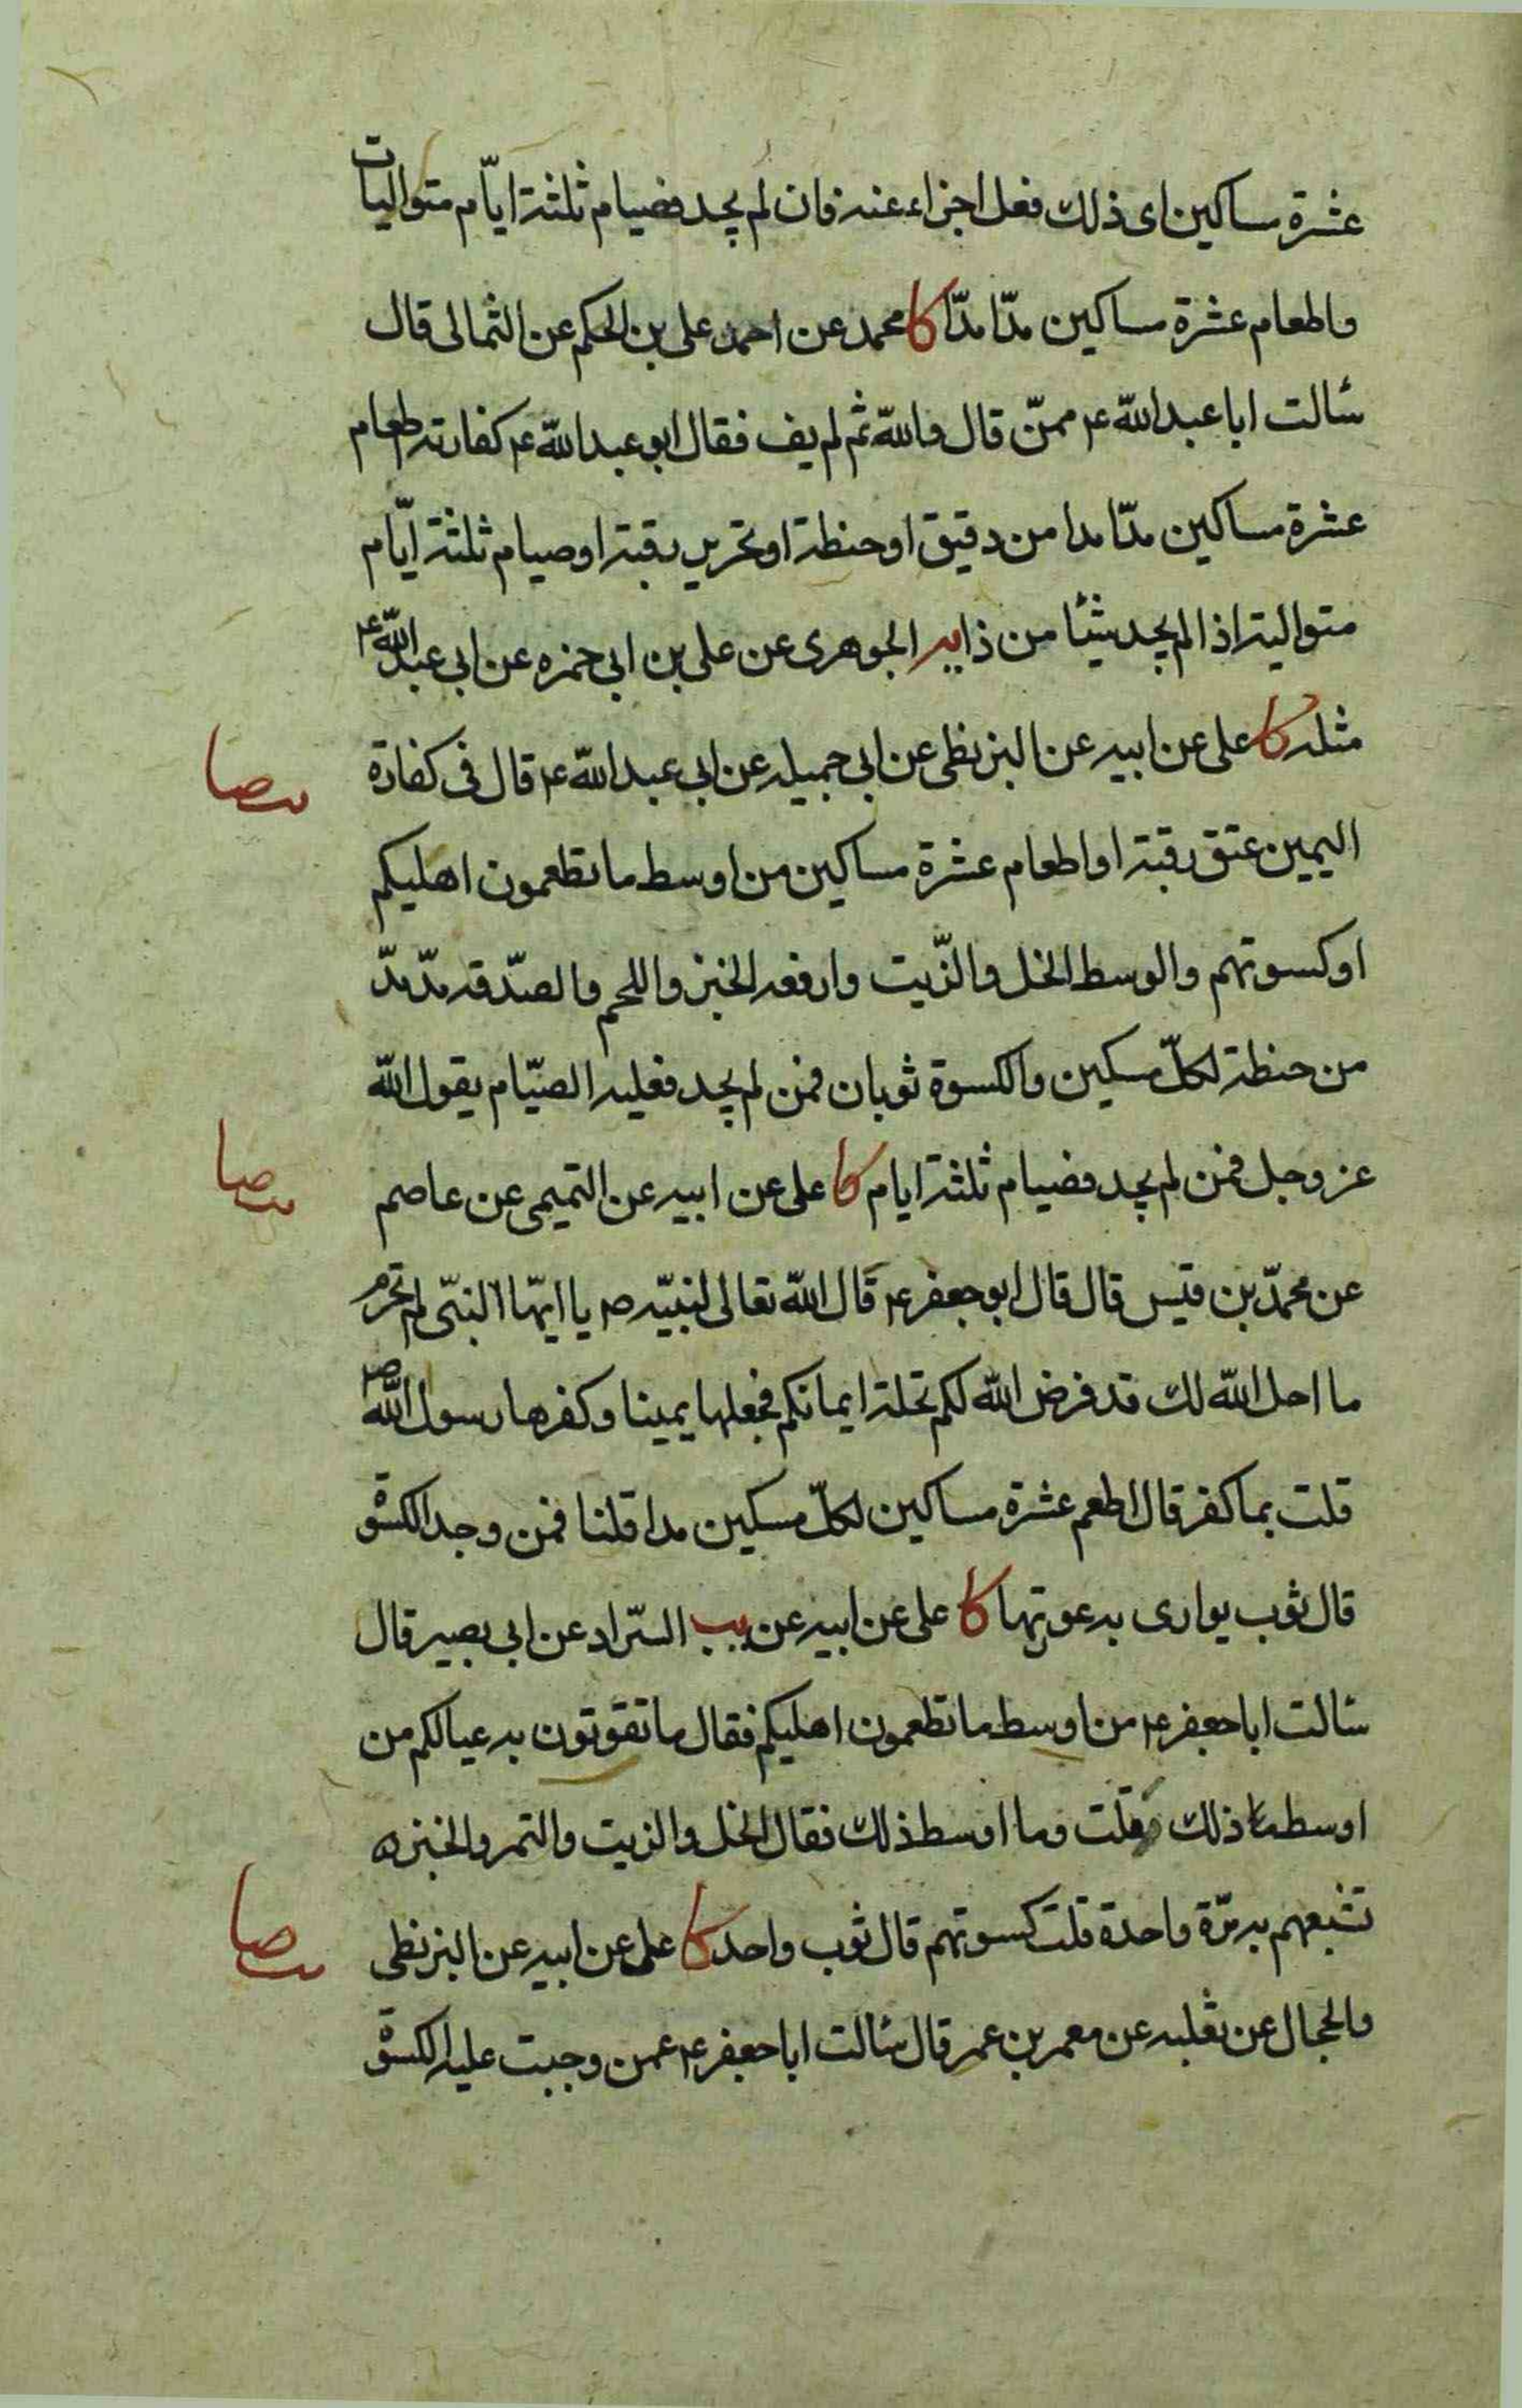 عشرة مساكين اى ذلك فعل اجزاء عنه فان لم يجد فصيام ثلثة ايّام متواليات
واطعام عشرة مساكين مدّا مدّا كا محمد عن احمد على بن الحكم عن الثمالى قال
سئالت ابا عبد الله ع ممّن قال والله ثم لم يف فقال ابو عبد الله ع كفارته اطعام
عشرة مساكين مدّا مدا من دقيق او حنطة او تحرير رقبة او صيام ثلثة ايّام
متوالية اذا لم يجد شيئا من ذا يه الجوهرى عن على بن ابى حمزه عن ابى عبد الله ع
مثله كا على عن ابيه عن البزنطى عن ابى جميله عن ابى عبد الله ع قال فى كفارة
صا
اليمين عتق رقبة او اطعام عشرة مساكين من اوسط ما تطعمون اهليكم
او كسوتهم والوسط الخل والزّيت وارفعه الخبز واللحم والصّدقه مدّ مدّ
من حنطة لكلّ مسكين والكسوة ثوبان فمن لم يجد فعليه الصيّام يقول الله
عز وجل فمن لم يجد فصيام ثلثة ايام كا على عن ابيه عن التميمى عن عاصم
صا
عن محمّد بن قيس قال قال ابو جعفر ع قال الله تعالى لنبيّه ص يا ايّها النبىّ لم تحرّم
ما احل الله لك قد فرض الله لكم تحلة ايمانكم فجعلها يمينا وكفرها رسول الله ص
قلت بما كفر قال اطعم عشرة مساكين لكلّ مسكين مدا قلنا فمن وجد الكسوة
قال ثوب يوارى به عورتها كا على عن ابيه عن يب السّراد عن ابى بصير قال
سئالت ابا جعفر ع من اوسط ما تطعمون اهليكم فقال ما تقوتون به عيالكم من
اوسط ذلك قلت وما اوسط ذلك فقال الخل والزيت والتمر والخبز
تشبعهم به مرّة واحدة قلت كسوتهم قال ثوب واحد كا على عن ابيه عن البزنطى
صا
والحجال عن ثعلبه عن معمر بن عمر قال سئالت ابا جعفر ع عمن وجبت عليه الكسوة